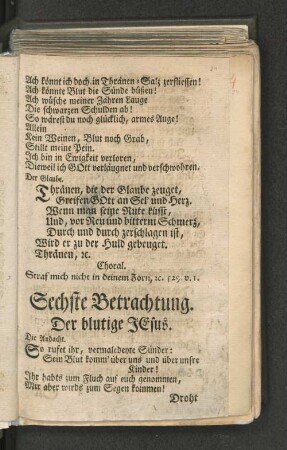 Ach könnt ich doch in Thränen-Saltz zerfliessen!
Ach könnte Blut die Sünde büßen!
Ach wüsche meiner Zähren Lauge
Die schwarzen Schulden ab!
So wärest du noch glücklich, armes Auge!
Allein
Kein Weinen, Blut noch Grab,
Stillt meine Pein.
Ich bin in Ewigkeit verloren,
Dieweil ich GOtt verläugnet und verschworen.
Der Glaube.
Thränen, die der Glaube zeuget,
Greifen GOtt an Seel und Herz.
Wenn man seine Rute küsst,
Und, vor Reu und bitterm Schmerz,
Durch und durch zerschlagen ist,
Wird er zu der Huld gebeuget.
Thränen, ꝛc.
Choral.
Straf mich nicht in deinem Zorn, ꝛc. 529. v. 1.
Sechste Betrachtung.
Der blutige JEsus.
Die Andacht.
So rufet ihr, vermaledeyte Sünder:
Sein Blut komm' über uns und über unsre
Kinder!
Ihr habts zum Fluch auf euch genommen,
Mir aber wirds zum Segen kommen!
Droht